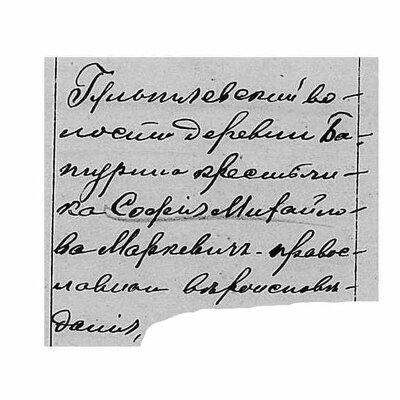 волости деревни Ба-
турина крестьян-
ка София Михайло-
ва Маркевичъ - право-
славнаи вѣроисповѣ-
данія,